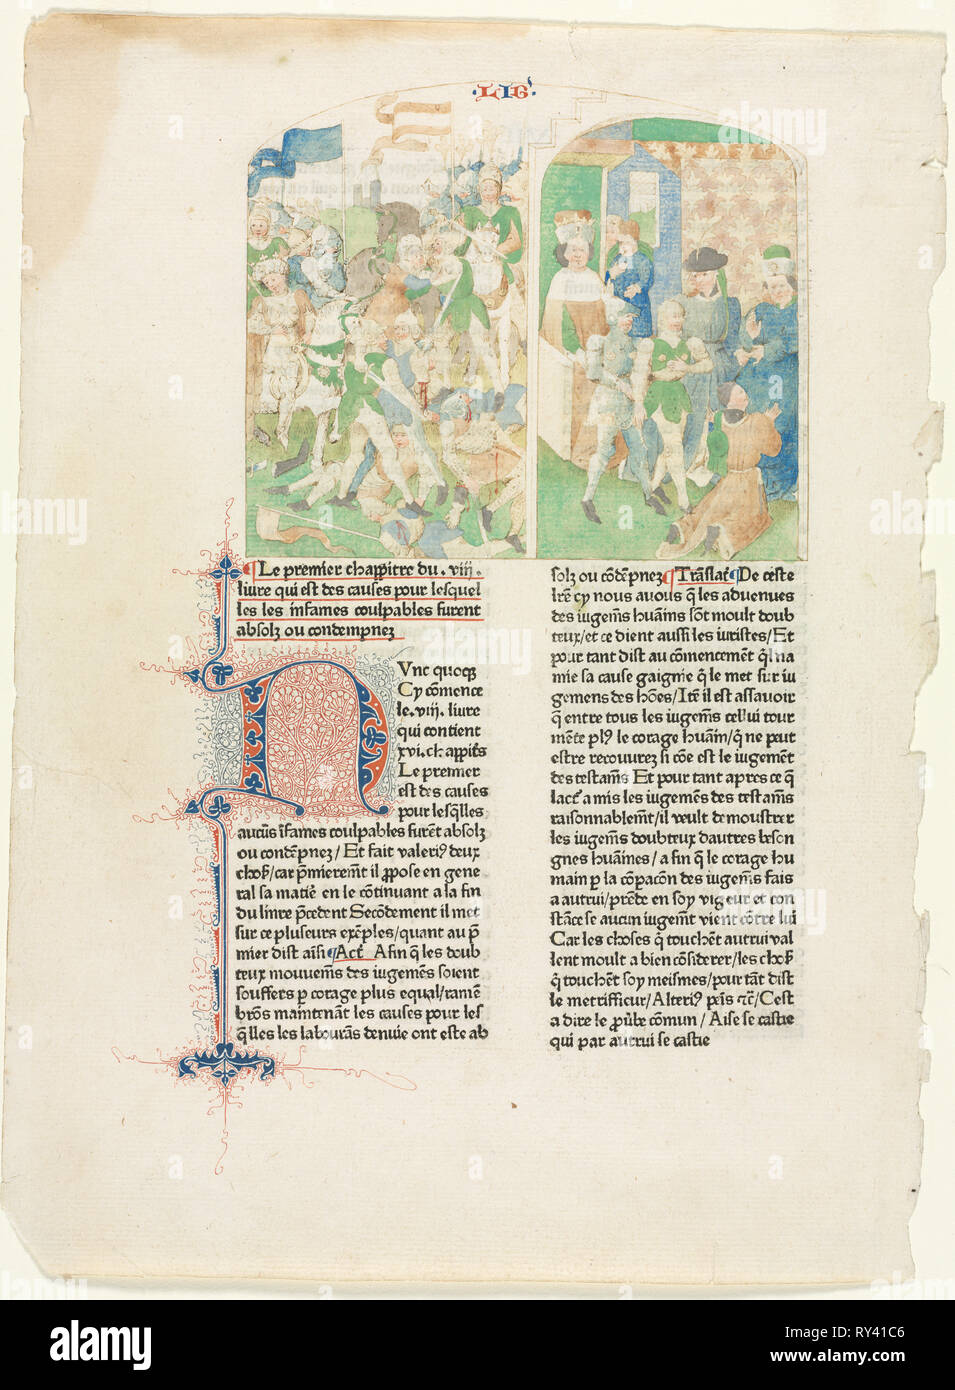 ·LIG'·
¶Le premier chappitre du .viij.
liure qui est des causes pour lesquel
les les infames coulpables furent
absolz ou condempnez
Vnc quocqȝ
Cy cōmence
le .viij. liure
qui contient
xvi. chappitēs
Le premier
est des causes
pour lesq̄lles
aucūs īfames coulpables furēt absolz
ou condēpnez / Et fait valeriꝰ deux
choß / car p̄mieremēt il ꝓpose en gene
ral sa matiē en le cōtinuant a la fin
du liure p̄cedent Secōdement il met
sur ce plusieurs exēples / quant au p̄
mier dist aīsi ¶Act̄ Afin q̄ les doub
teux mouuem̄s des iugem̄es soient
souffers ꝑ corage plus equal / ramē
brōs maintenāt les causes pour les
q̄lles les labourās denuie ont este ab
solz ou cōdēpnez ¶Trāslat̄ ¶De ceste
lr̄e cy nous auōus q̄ les aduenues
des iugem̄s huāins sōt moult doub
teux / et ce dient aussi les iuristes / Et
pour tant dist au cōmencemēt q̄l na
mie sa cause gaignie q̄ le met sur iu
gemens des hōes / Itē il est assauoir
q̄ entre tous les iugem̄s celui tour
mēte plꝰ le corage huāin / q̄ ne peut
estre recouurez si cōe est le iugemēt
des testam̄s Et pour tant apres ce q̄
lact̄ a mis les iugem̄es des testam̄s
raisonnablem̄t / il veult demoustrer
les iugem̄s doubteux dautres beson
gnes huāines / a fin q̄ le corage hu
main ꝑ la cōꝑacōn des iugem̄s fais
a autrui / prēde en soy vigeur et con
stāce se aucun iugem̄t vient cōtre lui
Car les choses q̄ touchēt autrui val
lent moult a bien cōsiderer / les choß
q̄ touchēt soy meismes / pour tāt dist
le metrifficur / Alteriꝰ pēis ⁊c̄ / Cest
a dire le ꝓūbe cōmun / Aise se castie
qui par autrui se castie
alamy
alamy
Image ID: RY41C6
www.alamy.com